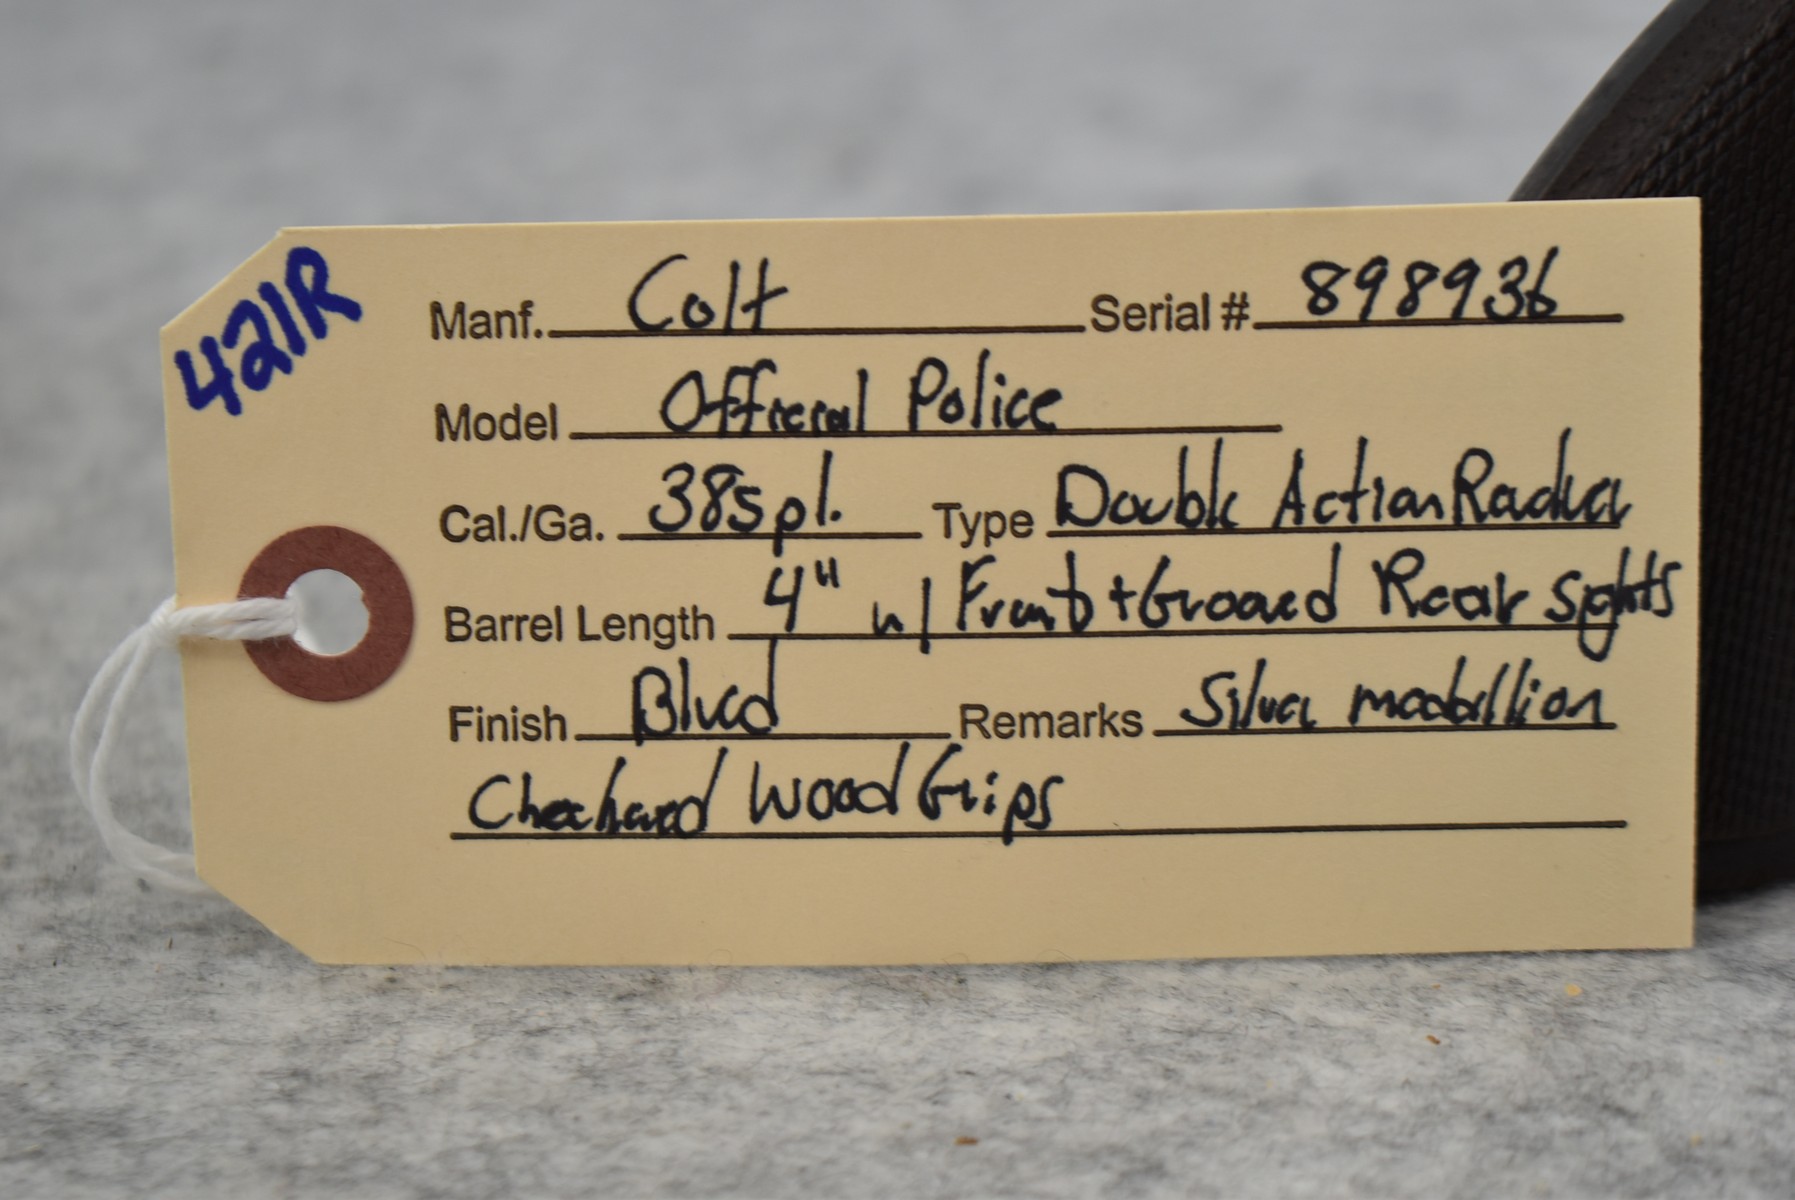 421R
Manf. Colt Serial # 898936
Model Official Police
Cal./Ga. 38spl. Type Double Action
Barrel Length 4" w/ Front + Grooved Rear Sights
Finish Blued Remarks Silver medallion
Checkered Wood Grips